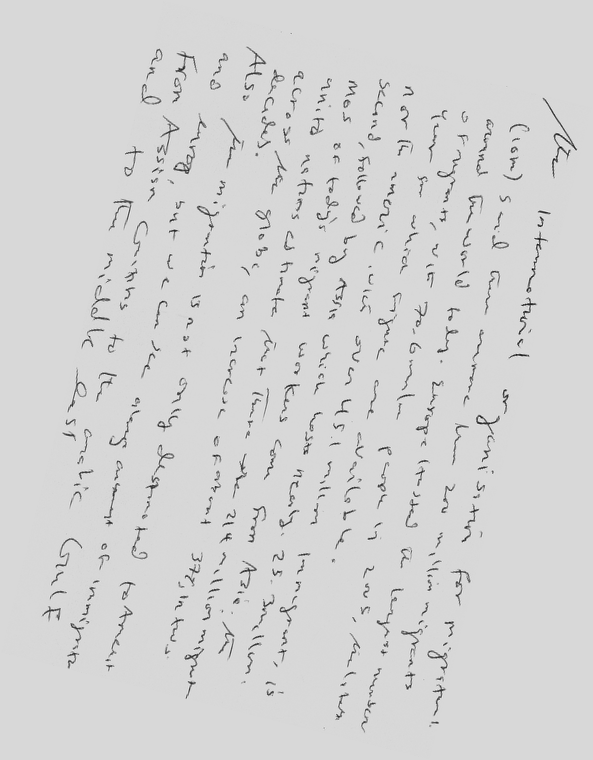 The International organisation for migration
(iom) said than are more than 200 million migrants
around the world today. Europe hosted the largest number
of migrants, with 70.6 million people in 2005, the latest
year in which figure are available.
North America, with over 45.1 million immigrants, is
second, followed by Asia which hosts nearly 25.3 million.
Most of today's migrant workers come from Asia. The
united nations estimate that there are 214 million migrant
across the globe, an increase of about 37% in two
decades.
Also the migration is not only destinated to America
and europ, but we can see along amount of inmigrate
From Assian Contries to the arabic Gulf
and to the middle East